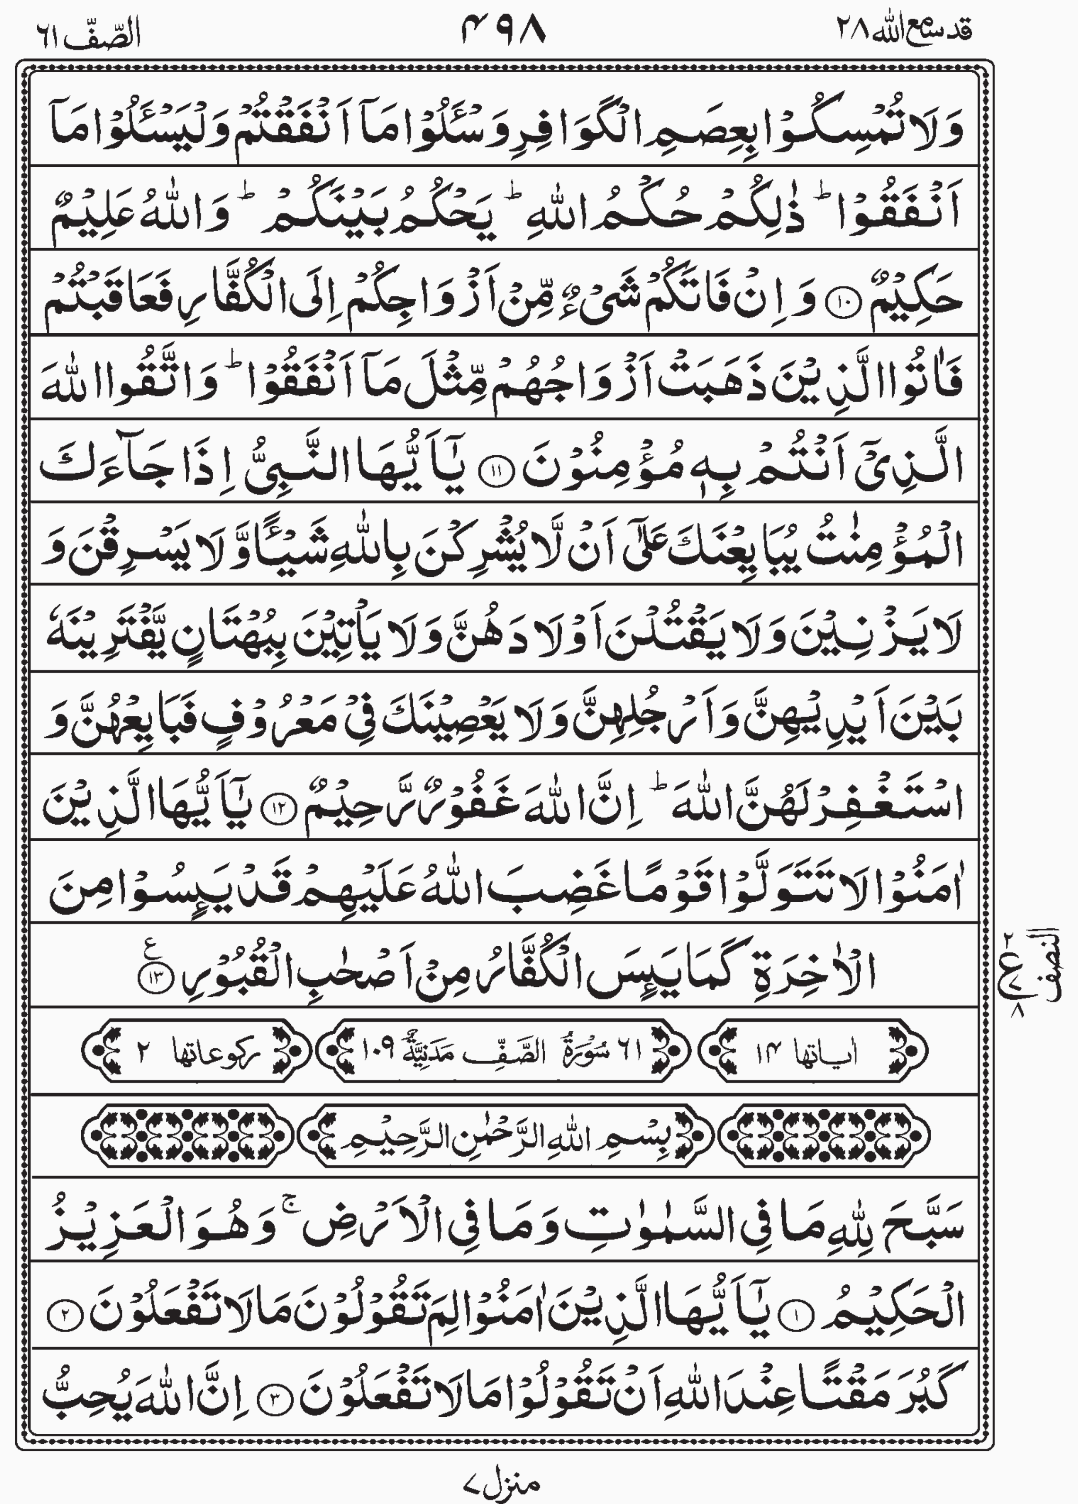 قد سمع الله ٢٨
۴۹۸
الصّفّ ٦١
وَلَا تُمْسِكُوْا بِعِصَمِ الْكَوَافِرِ وَسْـَٔلُوْا مَآ اَنْفَقْتُمْ وَلْيَسْـَٔلُوْا مَآ
اَنْفَقُوْا ؕ ذٰلِكُمْ حُكْمُ اللّٰهِ ؕ يَحْكُمُ بَيْنَكُمْ ؕ وَاللّٰهُ عَلِيْمٌ
حَكِيْمٌ ﴿۱۰﴾ وَاِنْ فَاتَكُمْ شَیْءٌ مِّنْ اَزْوَاجِكُمْ اِلَى الْكُفَّارِ فَعَاقَبْتُمْ
فَاٰتُوا الَّذِيْنَ ذَهَبَتْ اَزْوَاجُهُمْ مِّثْلَ مَآ اَنْفَقُوْا ؕ وَاتَّقُوا اللّٰهَ
الَّذِیْۤ اَنْتُمْ بِهٖ مُؤْمِنُوْنَ ﴿۱۱﴾ يٰۤاَيُّهَا النَّبِیُّ اِذَا جَآءَكَ
الْمُؤْمِنٰتُ يُبَايِعْنَكَ عَلٰۤى اَنْ لَّا يُشْرِكْنَ بِاللّٰهِ شَيْـًٔا وَّلَا يَسْرِقْنَ وَ
لَا يَزْنِيْنَ وَلَا يَقْتُلْنَ اَوْلَادَهُنَّ وَلَا يَاْتِيْنَ بِبُهْتَانٍ يَّفْتَرِيْنَهٗ
بَيْنَ اَيْدِيْهِنَّ وَاَرْجُلِهِنَّ وَلَا يَعْصِيْنَكَ فِیْ مَعْرُوْفٍ فَبَايِعْهُنَّ وَ
اسْتَغْفِرْ لَهُنَّ اللّٰهَ ؕ اِنَّ اللّٰهَ غَفُوْرٌ رَّحِيْمٌ ﴿۱۲﴾ يٰۤاَيُّهَا الَّذِيْنَ
اٰمَنُوْا لَا تَتَوَلَّوْا قَوْمًا غَضِبَ اللّٰهُ عَلَيْهِمْ قَدْ يَئِسُوْا مِنَ
الْاٰخِرَةِ كَمَا يَئِسَ الْكُفَّارُ مِنْ اَصْحٰبِ الْقُبُوْرِ ﴿۱۳﴾ ع
النصف
۲
ع
۷
۸
اٰياتها ۱۴
٦١ سُوْرَةُ الصَّفِّ مَدَنِيَّةٌ ١٠٩
ركوعاتها ٢
بِسْمِ اللّٰهِ الرَّحْمٰنِ الرَّحِيْمِ
سَبَّحَ لِلّٰهِ مَا فِی السَّمٰوٰتِ وَمَا فِی الْاَرْضِ ۚ وَهُوَ الْعَزِيْزُ
الْحَكِيْمُ ﴿۱﴾ يٰۤاَيُّهَا الَّذِيْنَ اٰمَنُوْا لِمَ تَقُوْلُوْنَ مَا لَا تَفْعَلُوْنَ ﴿۲﴾
كَبُرَ مَقْتًا عِنْدَ اللّٰهِ اَنْ تَقُوْلُوْا مَا لَا تَفْعَلُوْنَ ﴿۳﴾ اِنَّ اللّٰهَ يُحِبُّ
منزل ۷